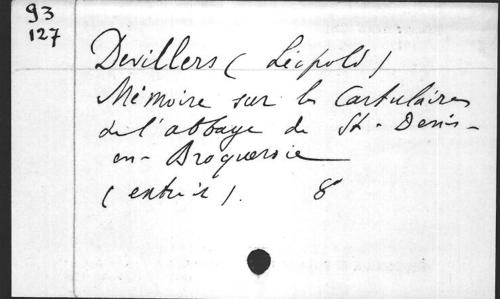 93
127
Devillers (Léopold)
Mémoire sur les Cartulaires
de l'abbaye de St-Denis-
en-Broqueroie
(extrait). 8°